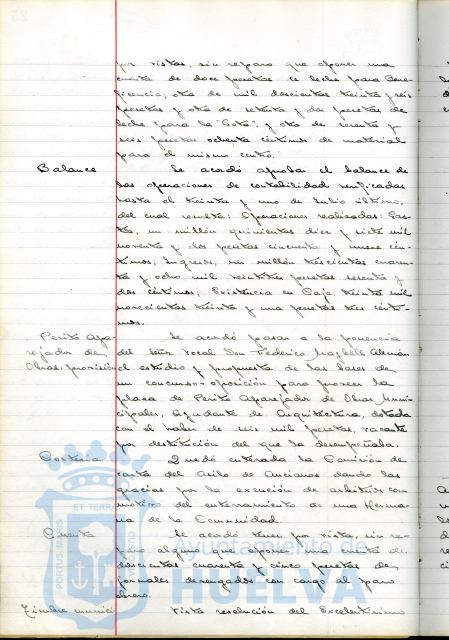 por vistas, sin reparo que oponer una
cuenta de doce pesetas de leche para Bene-
ficencia, otra de mil doscientas treinta y seis
pesetas y otra de setenta y dos pesetas de
leche para la "Gota", y otra de sesenta y
seis pesetas ochenta céntimos de material
para el mismo centro.
Balance
Se acordó aprobar el balance de
las operaciones de contabilidad verificadas
hasta el treinta y uno de Julio último,
del cual resulta: Operaciones realizadas: Gas-
tos, un millón quinientos diez y siete mil
noventa y dos pesetas cincuenta y nueve cén-
timos; Ingresos, un millón trescientas cuaren-
ta y ocho mil veintitres pesetas sesenta y
dos céntimos; Existencia en Caja, treinta mil
novecientas treinta y una pesetas tres cénti-
mos.
Perito Apa-
rejador de
Obras provisión
Se acordó pasar a la ponencia
del señor vocal Don Federico Alemán
el estudio y propuesta de las bases de
un concurso-oposición para proveer la
plaza de Perito Aparejador de Obras Muni-
cipales, Ayudante de Arquitectura, dotada
con el haber de seis mil pesetas, vacante
por destitución del que la desempeñaba.
Cortesía
Quedó enterada la Comisión de
carta del Asilo de Ancianos dando las
gracias por la exención de arbitrios con
motivo del enterramiento de una Herma-
na de la Comunidad.
Cuenta
Se acordó tener por vista sin re-
paro alguno que oponer una cuenta de
doscientas cuarenta y cinco pesetas de
jornales devengados con cargo al paro
obrero.
Timbre munici
Vista resolución del Excelentísimo
Ayuntamiento de
HUELVA